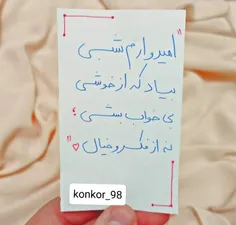 "امیدوارم شبی
بیاد که از خوشی
بی خواب بشی؛
نه از فکر و خیال"
konkor_98